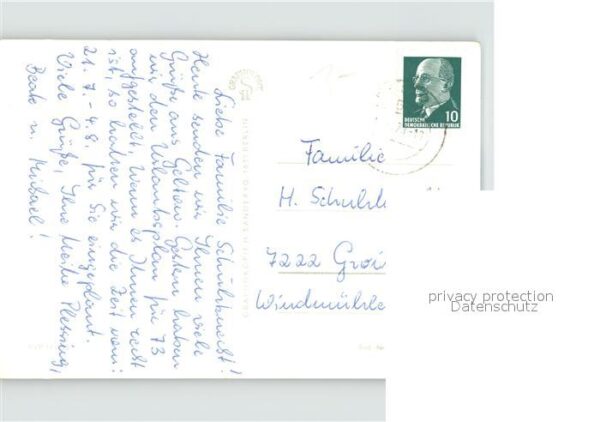 Liebe Familie Schulzbeist!
Heute senden wir Ihnen viele
Grüße aus Geltern. Gestern haben
wir den Urlaubsplan für 73
aufgestellt. Wenn es Ihnen recht
ist, so haben wir die Zeit vom:
21.7. - 4.8. für Sie eingeplant.
Viele Grüße, Ihre Meike Plessing,
Beate u. Michael!
DEUTSCHE
DEMOKRATISCHE REPUBLIK
10
Familie
H. Schulz
7222 Groi
Windmühle
privacy protection
Datenschutz